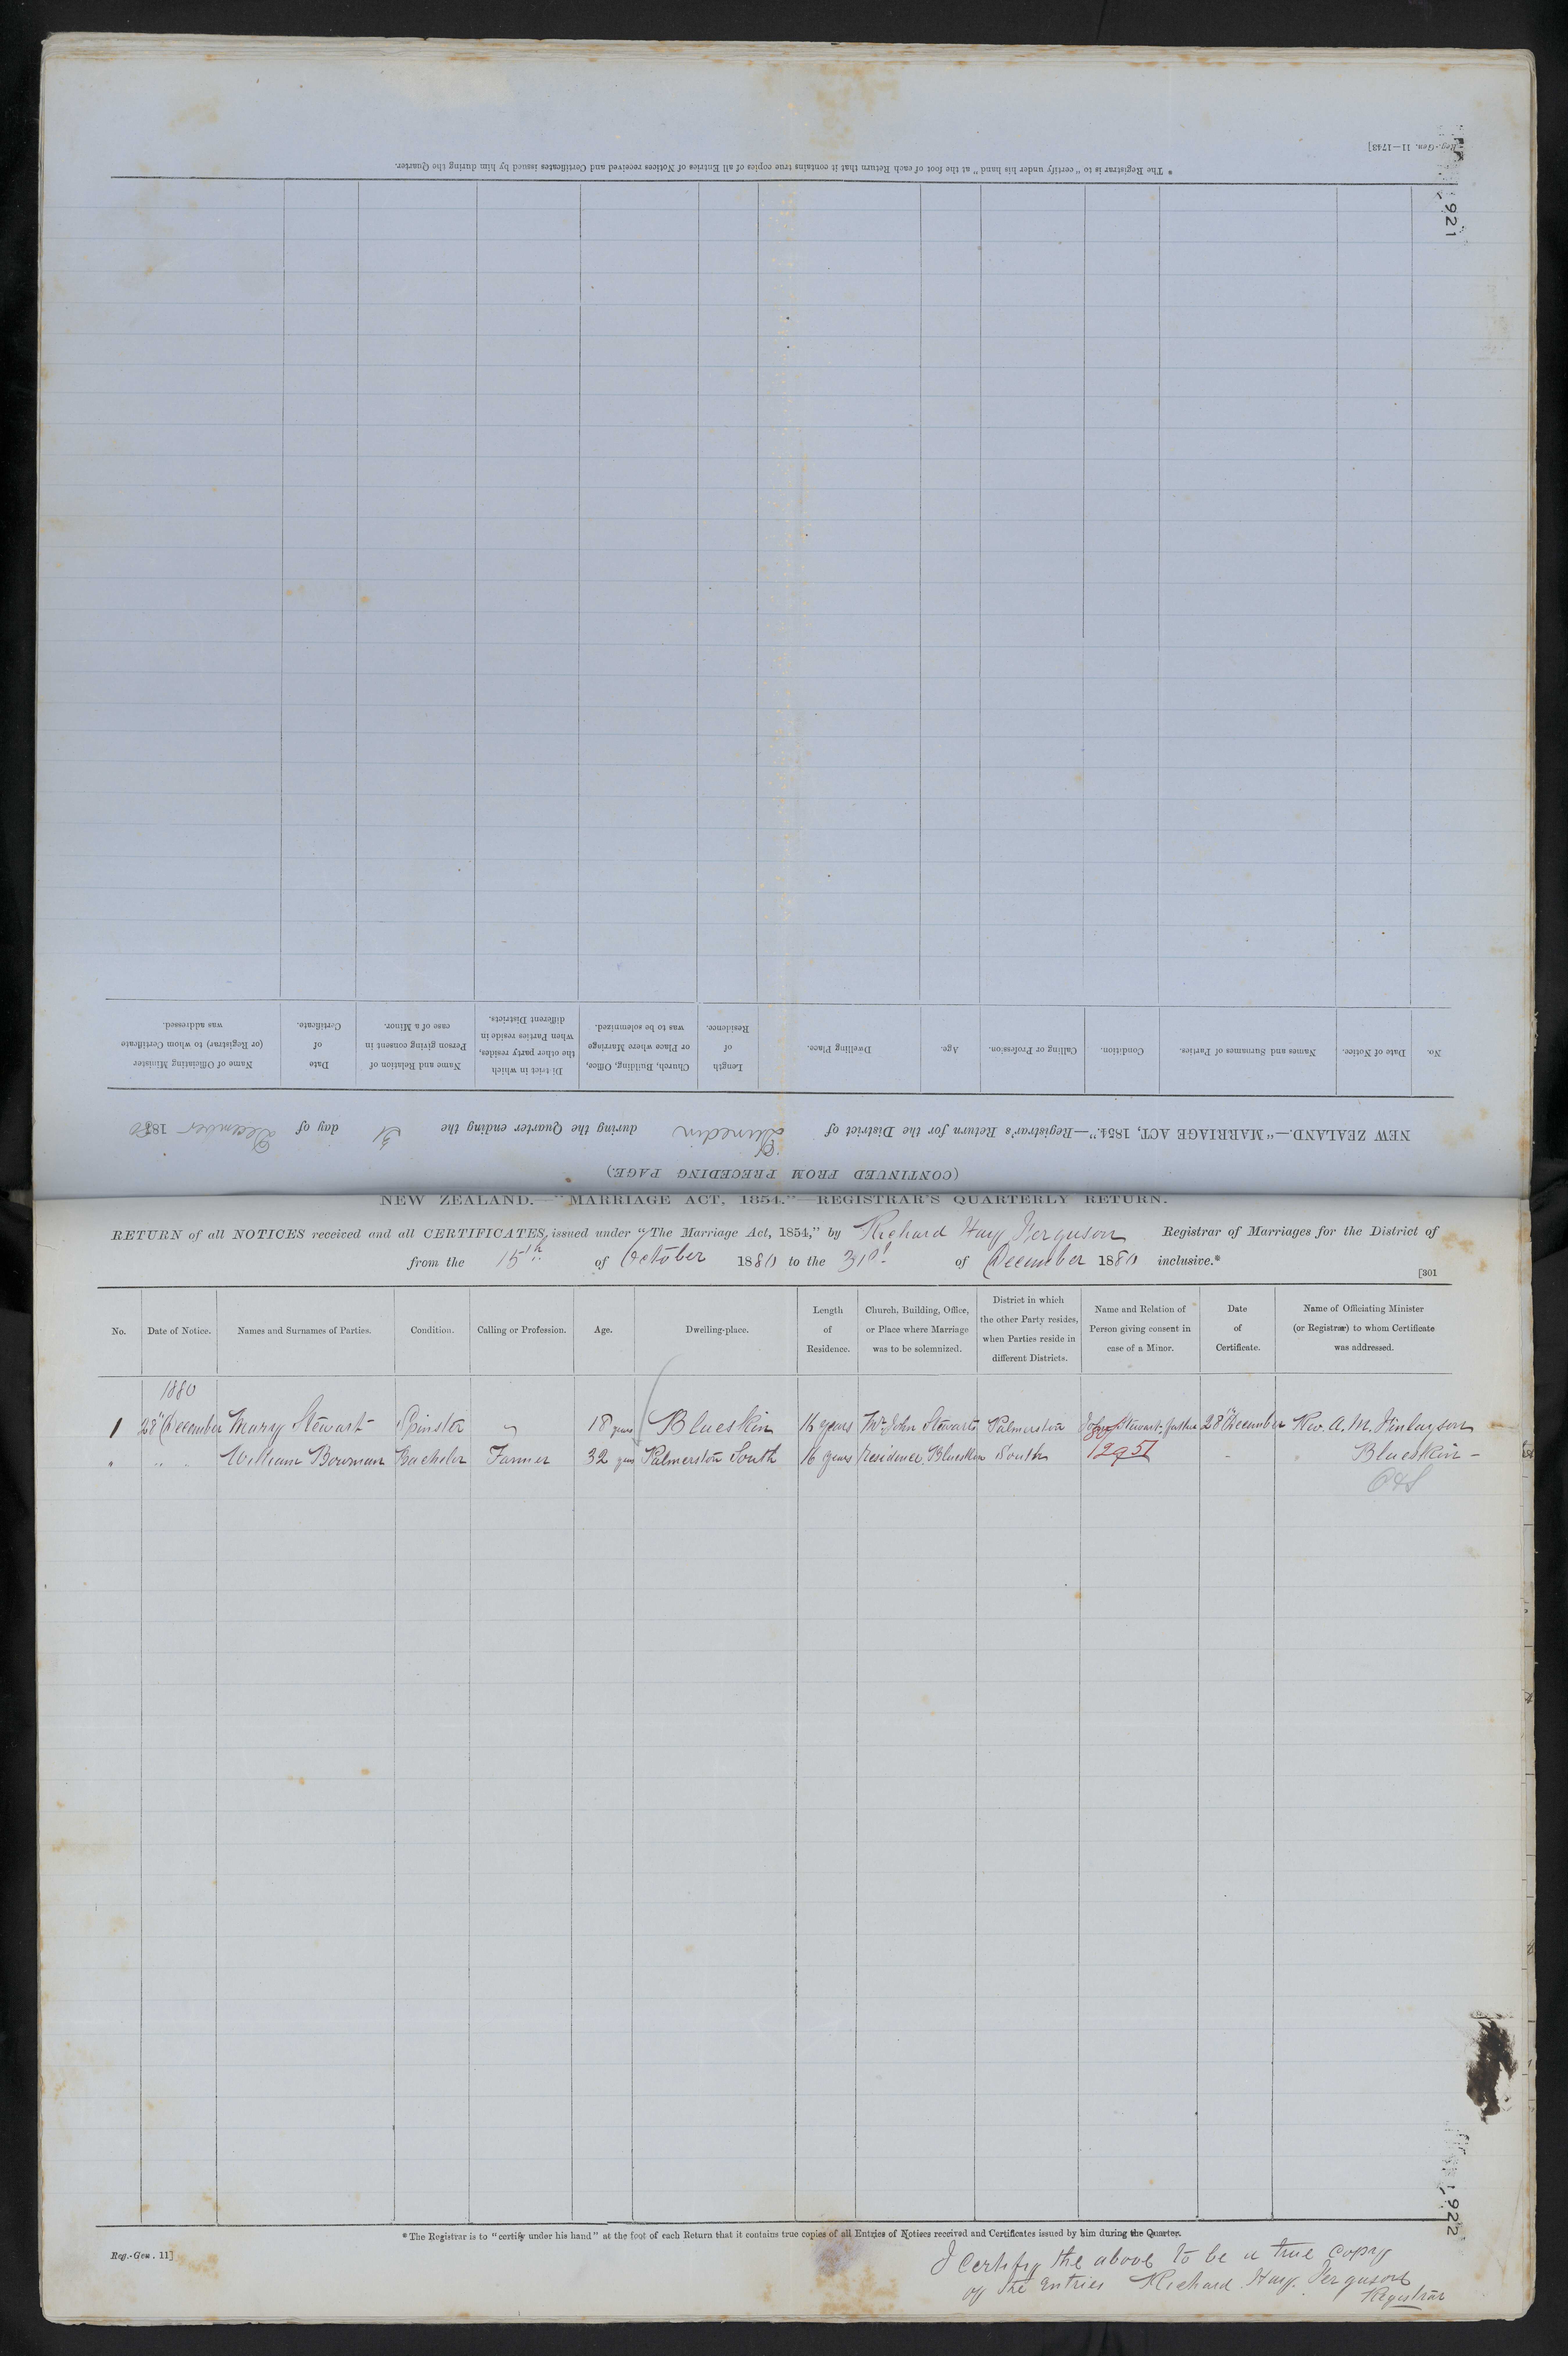 Reg.-Gen. 11—1743]
* The Registrar is to "certify under his hand" at the foot of each Return that it contains true copies of all Entries of Notices received and Certificates issued by him during the Quarter.
921
No.
Date of Notice.
Names and Surnames of Parties.
Condition.
Calling or Profession.
Age.
Dwelling Place.
Length of Residence.
Church, Building, Office, or Place where Marriage was to be solemnized.
District in which the other party resides, when Parties reside in different Districts.
Name and Relation of Person giving consent in case of a Minor.
Date of Certificate.
Name of Officiating Minister (or Registrar) to whom Certificate was addressed.
NEW ZEALAND.—"MARRIAGE ACT, 1854."—Registrar's Return for the District of Dunedin during the Quarter ending the 31 day of December 1880
(CONTINUED FROM PRECEDING PAGE.)
NEW ZEALAND.—"MARRIAGE ACT, 1854."—REGISTRAR'S QUARTERLY RETURN.
RETURN of all NOTICES received and all CERTIFICATES issued under "The Marriage Act, 1854," by Richard Hay Ferguson Registrar of Marriages for the District of
from the 15th of October 1880 to the 31st of December 1880 inclusive.*
[301
No.
Date of Notice.
Names and Surnames of Parties.
Condition.
Calling or Profession.
Age.
Dwelling-place.
Length of Residence.
Church, Building, Office, or Place where Marriage was to be solemnized.
District in which the other Party resides, when Parties reside in different Districts.
Name and Relation of Person giving consent in case of a Minor.
Date of Certificate.
Name of Officiating Minister (or Registrar) to whom Certificate was addressed.
1880
1 28th December Mary Stewart Spinster 18 years Blueskin 16 years Mr John Stewarts Palmerston John Stewart, father 28th December Rev. A. M. Finlayson
" " " William Bowman Bachelor Farmer 32 years Palmerston South 16 years residence, Blueskin South 1295 Blueskin -
* The Registrar is to "certify under his hand" at the foot of each Return that it contains true copies of all Entries of Notices received and Certificates issued by him during the Quarter.
Reg.-Gen. 11]
922
I Certify the above to be a true copy
of the Entries Richard Hay Ferguson
Registrar